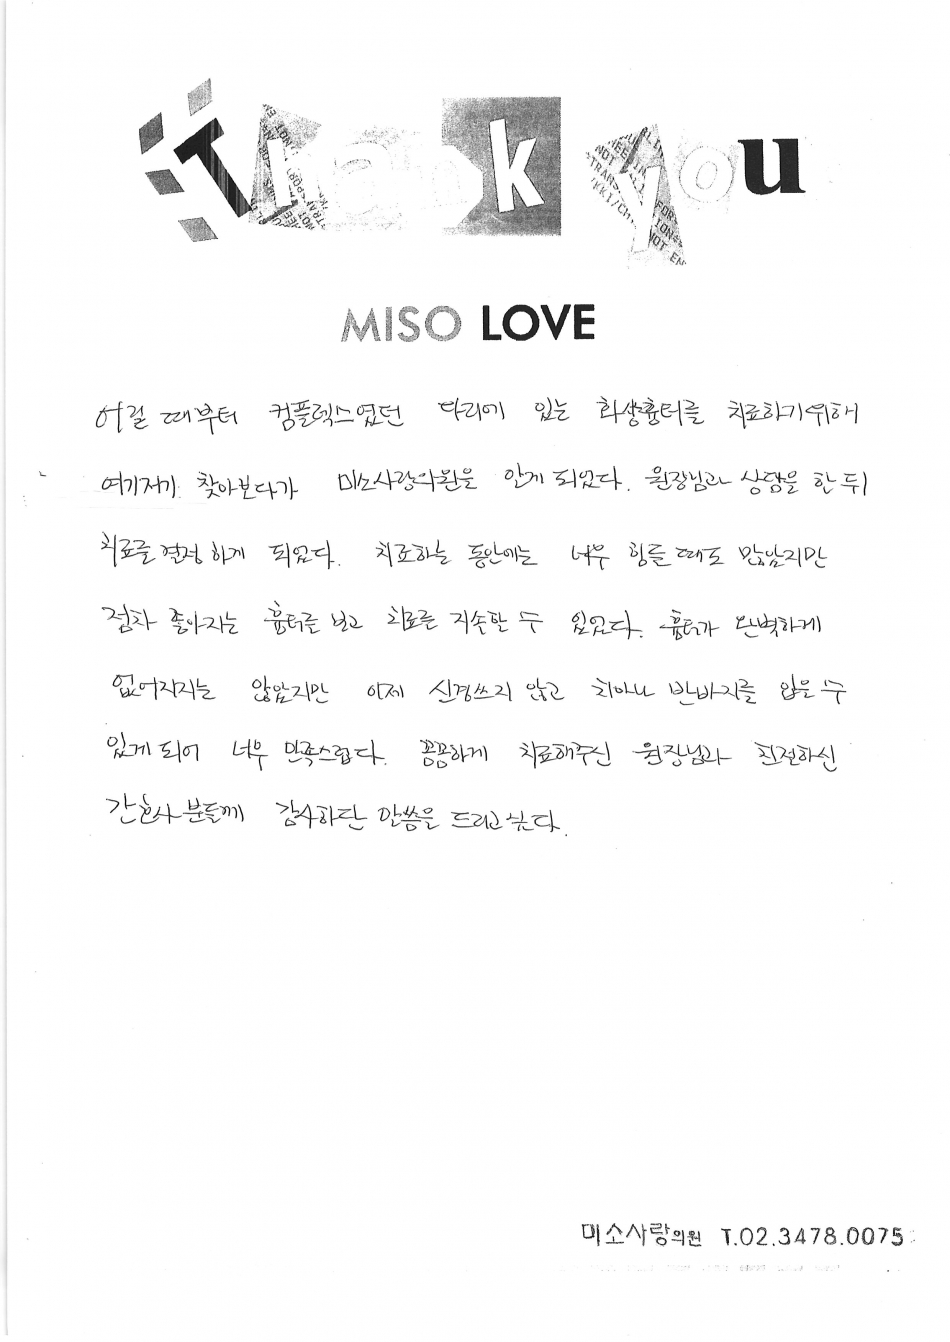 Thank you
MISO LOVE
어릴 때부터 컴플렉스였던 다리에 있는 화상흉터를 치료하기위해
여기저기 찾아보다가 미소사랑의원을 알게 되었다. 원장님과 상담을 한 뒤
치료를 결정 하게 되었다. 치료하는 동안에는 너무 힘들 때도 많았지만
점차 좋아지는 흉터를 보고 치료를 지속할 수 있었다. 흉터가 완벽하게
없어지지는 않았지만 이제 신경쓰지 않고 치마나 반바지를 입을 수
있게 되어 너무 만족스럽다. 꼼꼼하게 치료해주신 원장님과 친절하신
간호사 분들께 감사하단 말씀을 드리고 싶다.
미소사랑의원 T.02.3478.0075